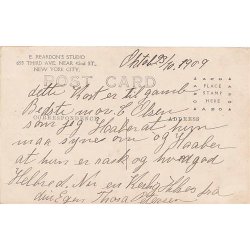 E REARDON'S STUDIO
693 THIRD AVE, NEAR 42nd ST.,
NEW YORK CITY.
POST CARD
PLACE
STAMP
HERE
CORRESPONDENCE
ADDRESS
23/10. 1909
dette Kort er til gamle
Bedstemor C Olsen
som jeg Haaber at hun
maa synes om og Haaber
at hun er rask og ved god
Helbred. Nu en Kjærlig Hilsen fra
din Egen Thora